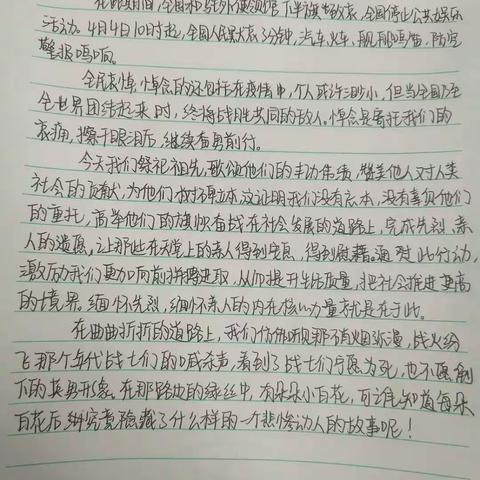 在此期间,全国和驻外使领馆下半旗志哀,全国停止公共娱乐
活动。4月4日10时起,全国人民默哀3分钟,汽车、火车、舰船鸣笛,防空
警报鸣响。
全民哀悼,悼念的还包括在疫情中,个人或许渺小,但当全国乃至
全世界团结起来时,终将战胜共同的敌人。悼念是寄托我们的
哀痛,擦干眼泪后,继续奋勇前行。
今天我们祭祀祖先,歌颂他们的丰功伟绩,赞美他人对人类
社会的贡献,为他们树碑立本,这证明我们没有忘本,没有辜负他们
的重托,高举他们的旗帜奋战在社会发展的道路上,完成先烈、亲
人的遗愿,让那些在天堂上的亲人得到安息,得到慰藉。通过此行动,
激励我们更加向前拼搏进取,从而提升生活质量,把社会推进更高
的境界。缅怀先烈,缅怀亲人的内在核心力量就是在于此。
在曲曲折折的道路上,我们仿佛听见那硝烟弥漫,战火纷
飞那个年代战士们的喊杀声,看到了战士们宁愿为死,也不愿倒
下的英勇形象。在那路边的绿丝中,有朵朵小百花,可谁知道每朵
百花后,究竟隐藏了什么样的一个悲惨动人的故事呢!